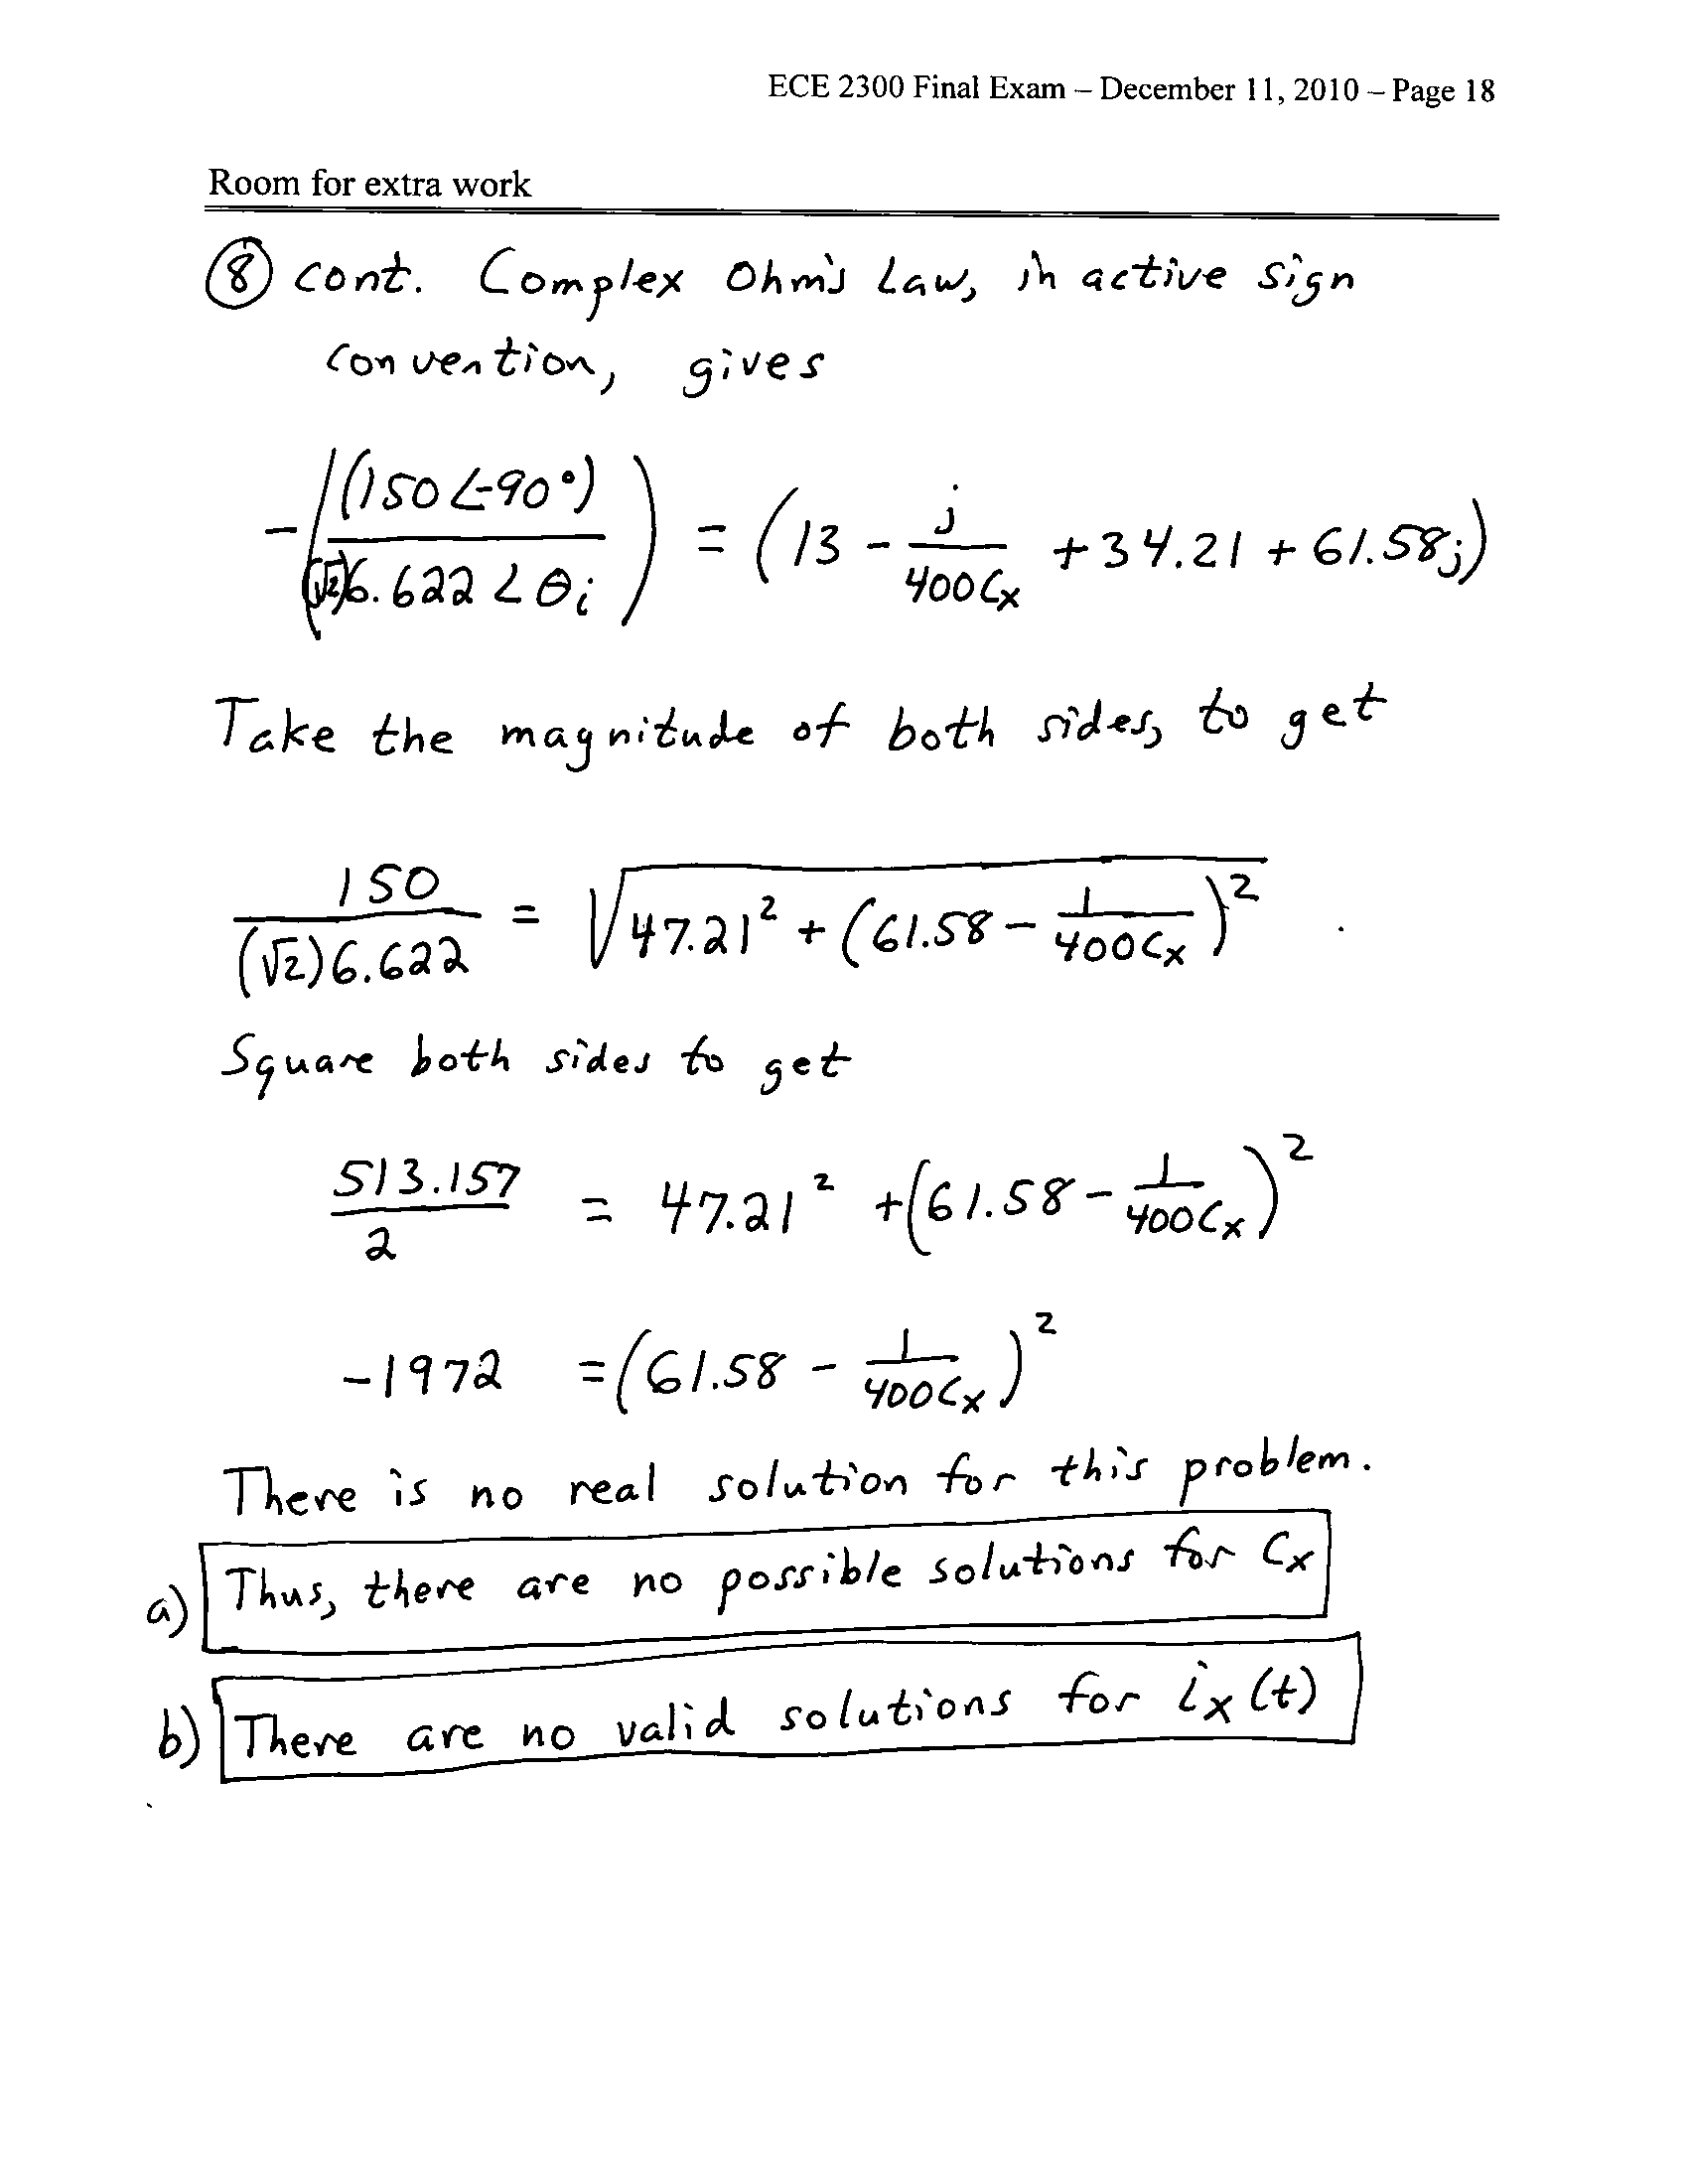 ECE 2300 Final Exam – December 11, 2010 – Page 18
Room for extra work
⑧ cont. Complex Ohm's Law, in active sign
convention, gives
-((150∠-90°) / (√2)6.622∠θi) = (13 - j/400Cx + 34.21 + 61.58j)
Take the magnitude of both sides, to get
150/(√2)6.622 = √(47.21² + (61.58 - 1/400Cx)²)
Square both sides to get
513.157/2 = 47.21² + (61.58 - 1/400Cx)²
-1972 = (61.58 - 1/400Cx)²
There is no real solution for this problem.
a) Thus, there are no possible solutions for Cx
b) There are no valid solutions for ix(t)